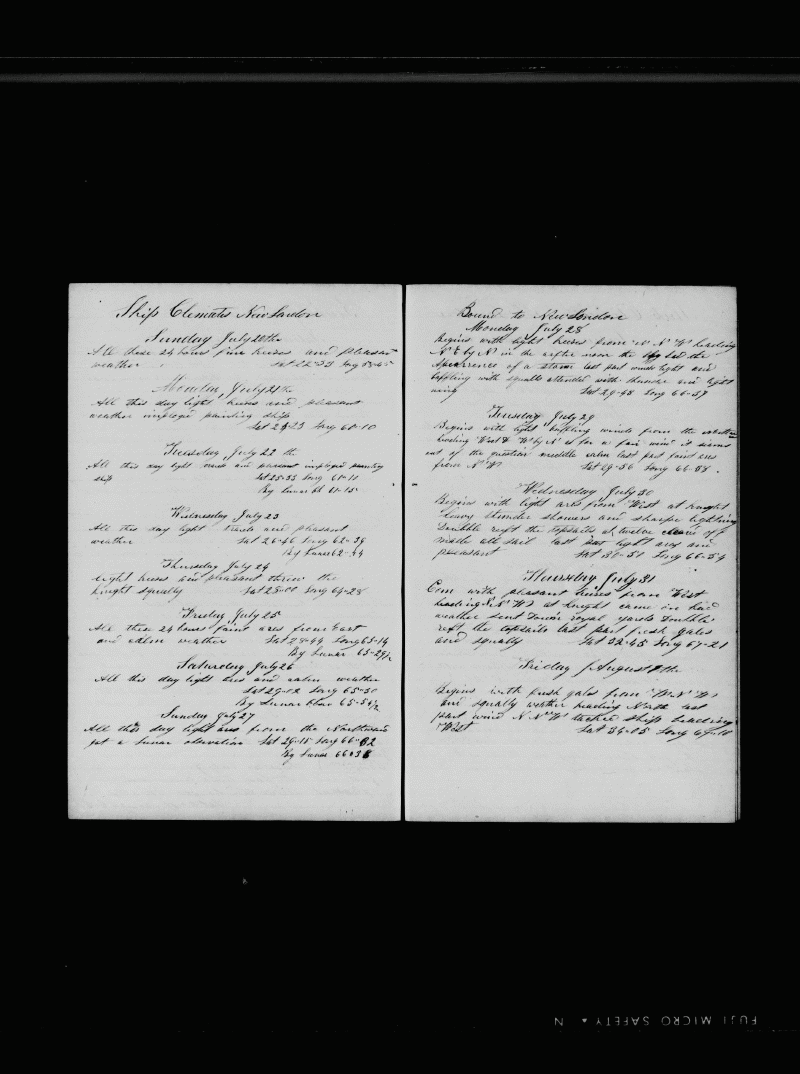 Ship Clematis New London
Sunday July 20th
All these 24 hours fine breses and pleasant
weather Lat 22-33 Long 58-45
Monday July 21th
All this day light breses and pleasant
weather imploid painting ship
Lat 23-23 Long 60-10
Tuesday July 22 th
All this day light and pleasant imploid painting
ship Lat 25-33 Long 61-10
By Lunar 61-15
Wednesday July 23
All this day light and pleasant
weather Lat 26-46 Long 62-39
By Lunar 62-44
Thursday July 24
Light breses and pleasant threw the
knight squally Lat 28-00 Long 64-28
Friday July 25
All these 24 hours faint ares from East
and calm weather Lat 28-44 Long 65-14
By Lunar 65-29 1/2
Saturday July 26
All this day light ares and calm weather
Lat 29-02 Long 65-30
By Lunar 65-54 1/2
Sunday July 27
All this day light ares from the Northward
got a Lunar observation Lat 29-15 Long 66-02
By Lunar 66-38
Bound to New London
Monday July 28
Begins with light breses from N N W heading
N E by N in the after noon the sky had the
apearrence of a storm last part winds light and
baffling with squalls attended with thunder and light
ning Lat 29-48 Long 66-57
Tuesday July 29
Begins with light baffling winds from the
heading West & W by N as for a fair wind it seams
out of the question middle calm last part faint ares
from N W Lat 29-56 Long 66-58
Wednesday July 30
Begins with light ares from West at knight
heavy thunder showers and sharpe lightning
Dubble reeft the topsails at twelve clear off
middle all sail last part light ares and
pleasant Lat 30-51 Long 66-54
Thursday July 31
Com with pleasant breses from West
heading N N W at knight came in bad
weather sent Down royal yards Dubble
reeft the topsails last part fresh gales
and squally Lat 32-45 Long 67-21
Friday August 1th
Begins with fresh gales from W N W
and squally weather heading North last
part wind N N W tacked ship heading
West Lat 34-05 Long 67-10
FUJI MICRO SAFETY ▲ N